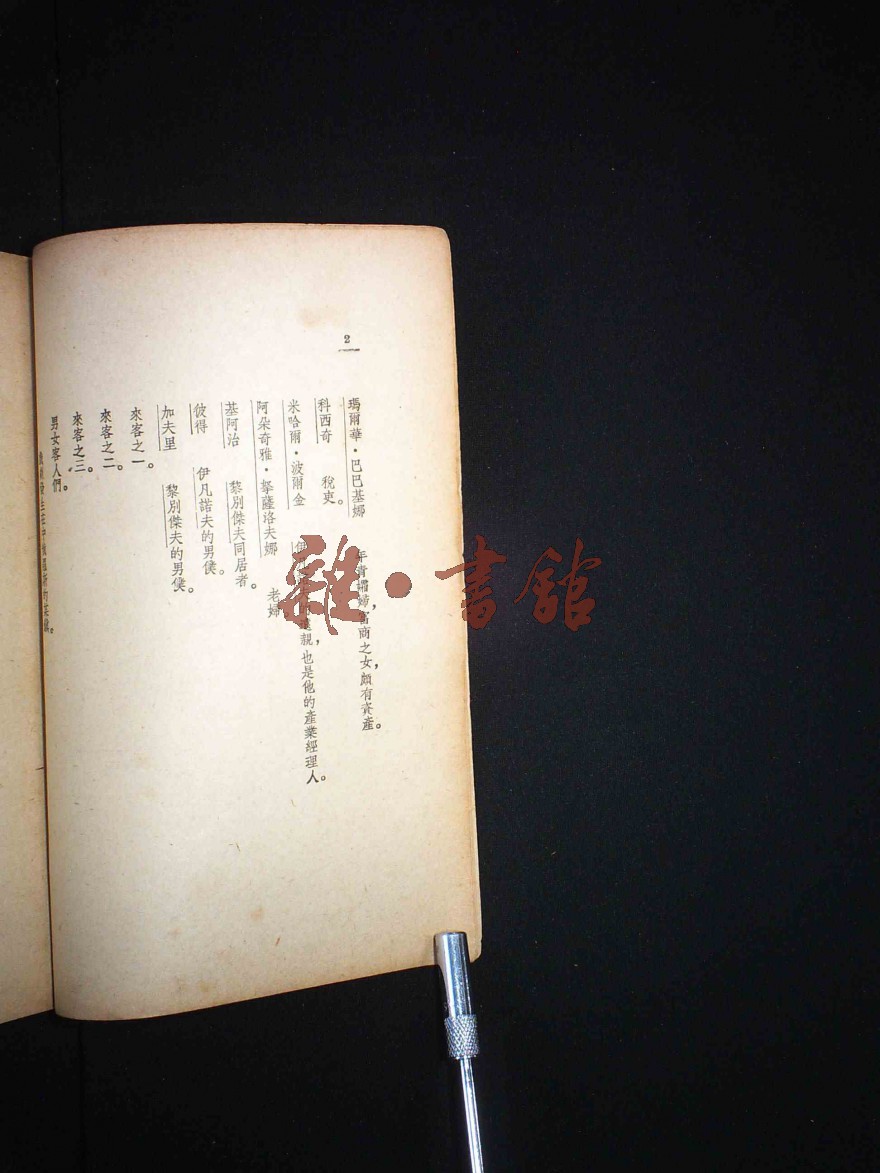 2
瑪爾華·巴巴基娜 年青孀婦,富商之女,頗有資產。
科西奇 稅吏。
米哈爾·波爾金 親,也是他的產業經理人。
阿朵奇雅·拏薩洛夫娜 老婦
基阿治 黎別傑夫同居者。
彼得 伊凡諾夫的男僕。
加夫里 黎別傑夫的男僕。
來客之一。
來客之二。
來客之三。
男女客人們。
雜·書館